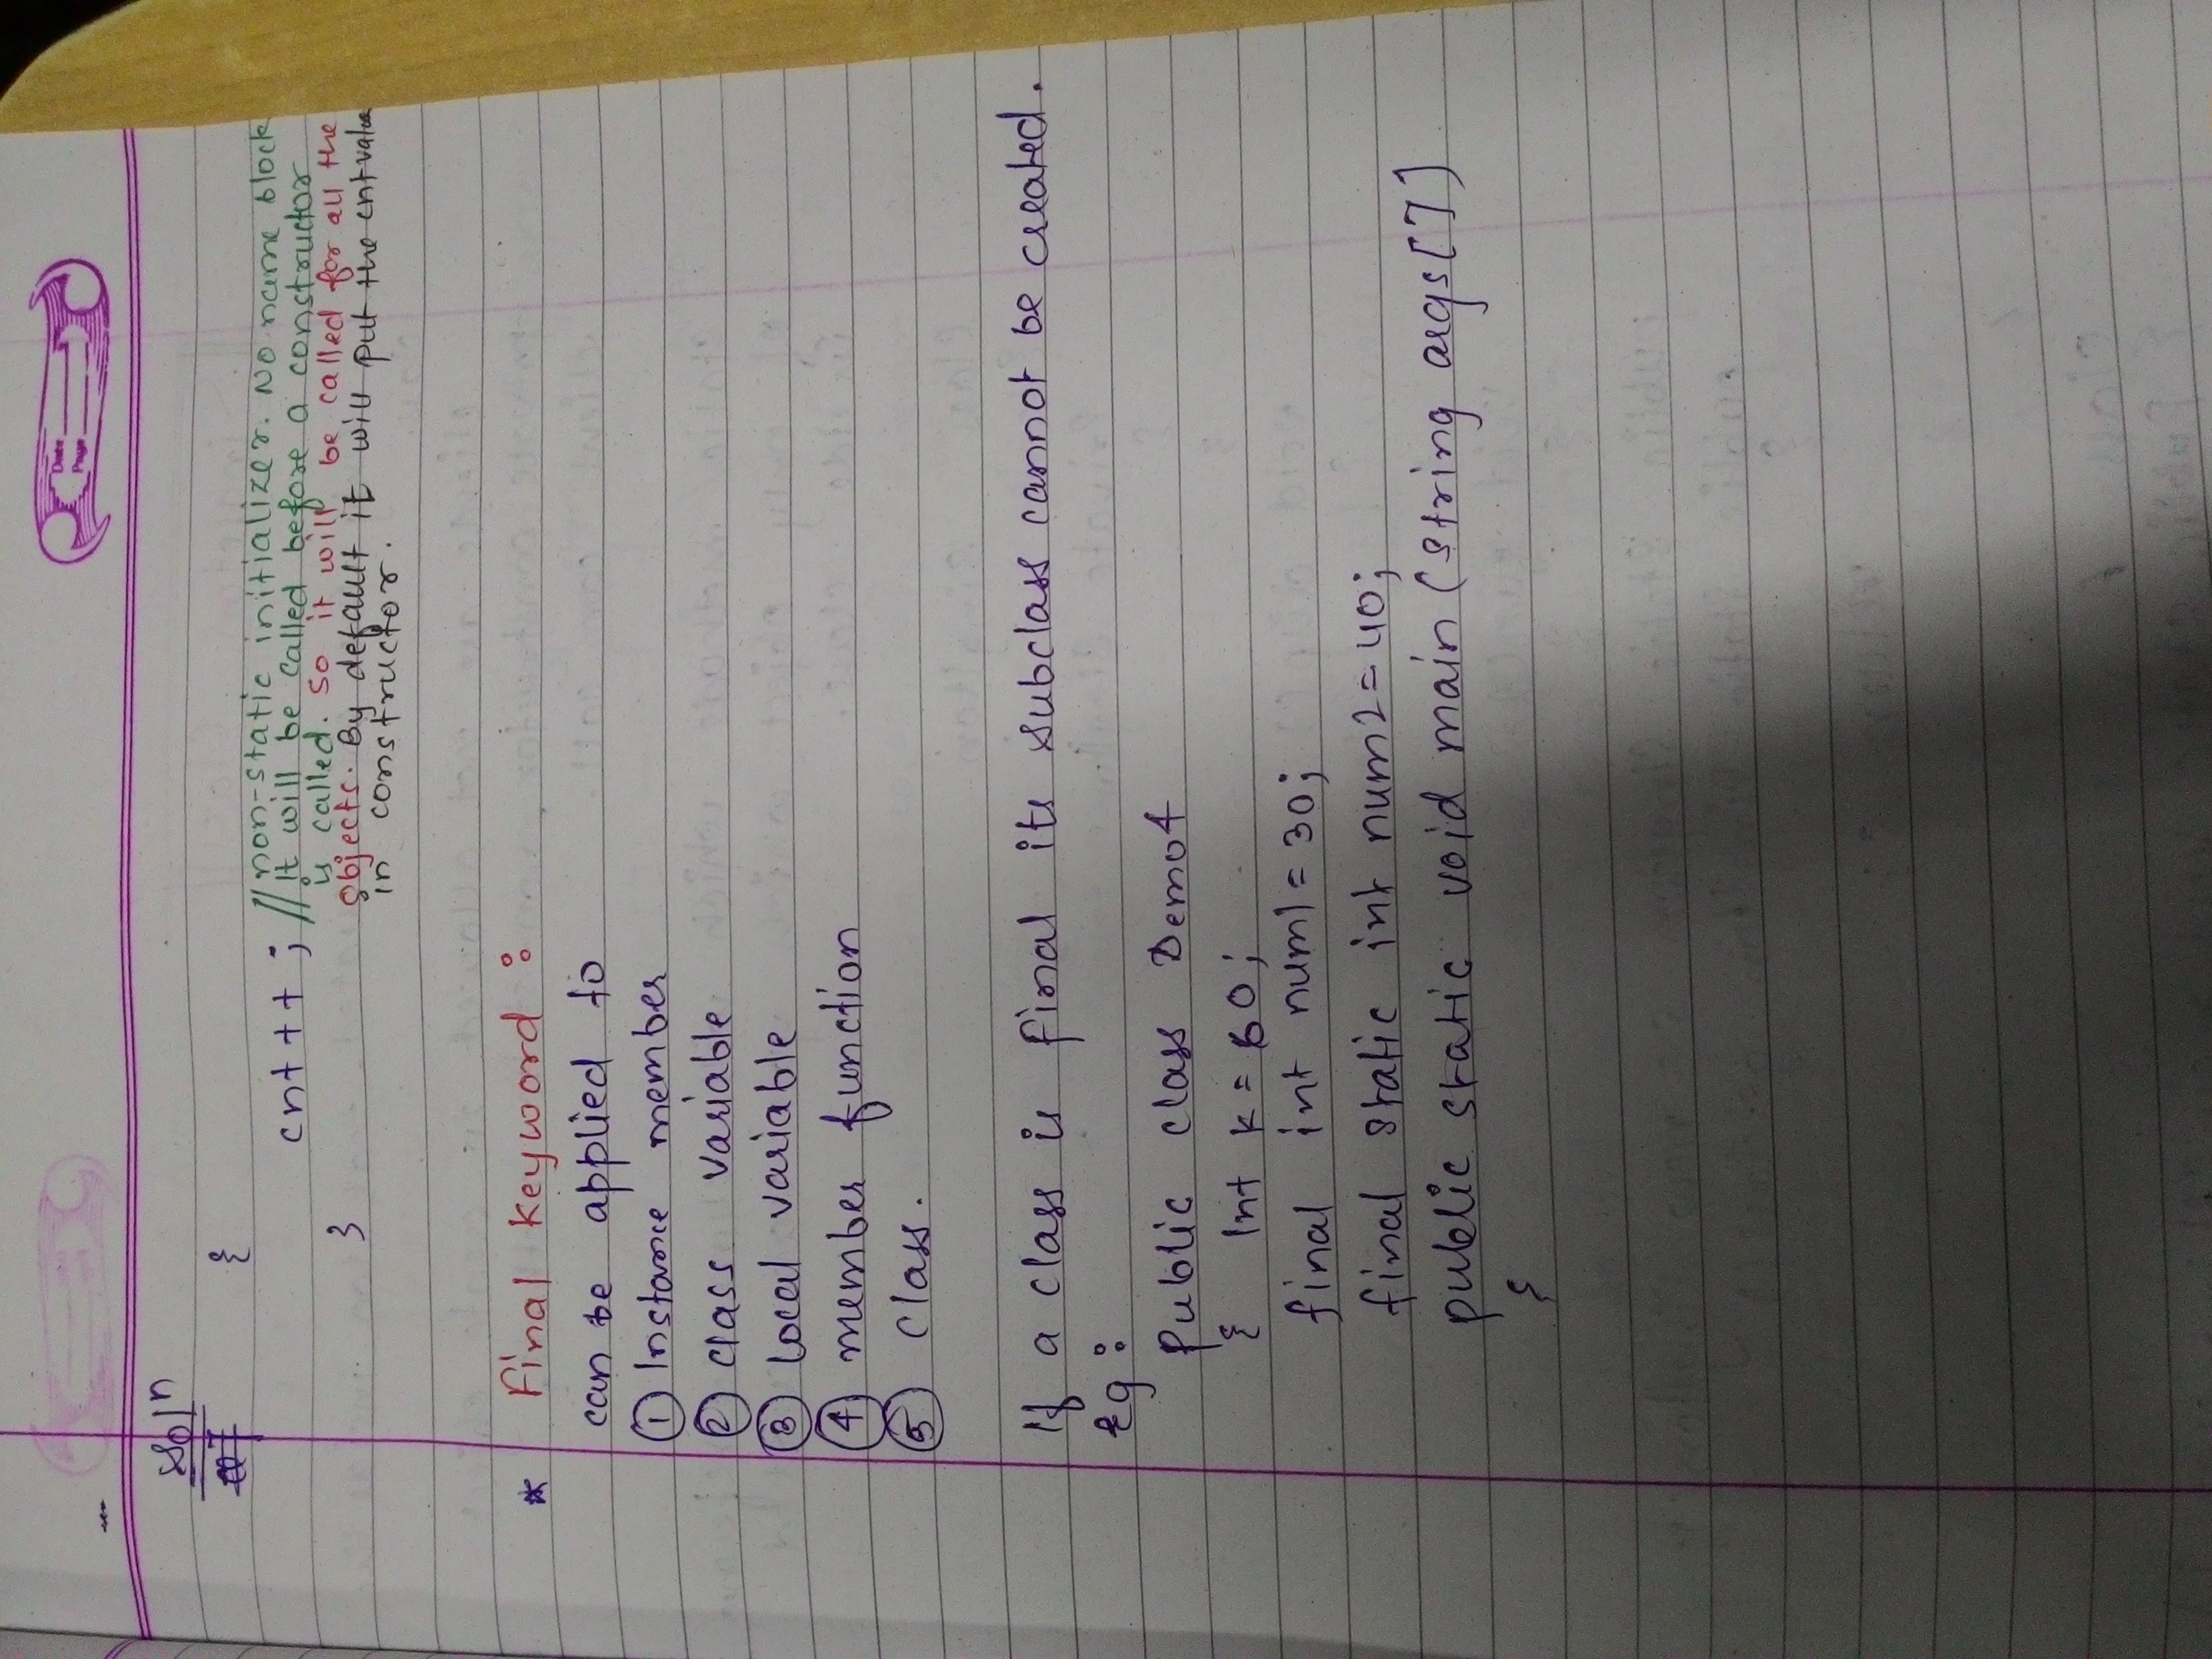 Date
Page
Soln
{
cnt++; // non-static initializer. No name block
It will be called before a constructor
is called. So it will be called for all the
objects. By default it will put the cnt value
in constructor.
}
* Final Keyword :
can be applied to
① Instance member
② class variable
③ Local variable
④ member function
⑤ Class.
If a class is final its subclass cannot be created.
Eg :
Public class Demo4
{ Int k = 60;
final int num1 = 30;
final static int num2 = 40;
public static void main (String args[]
{